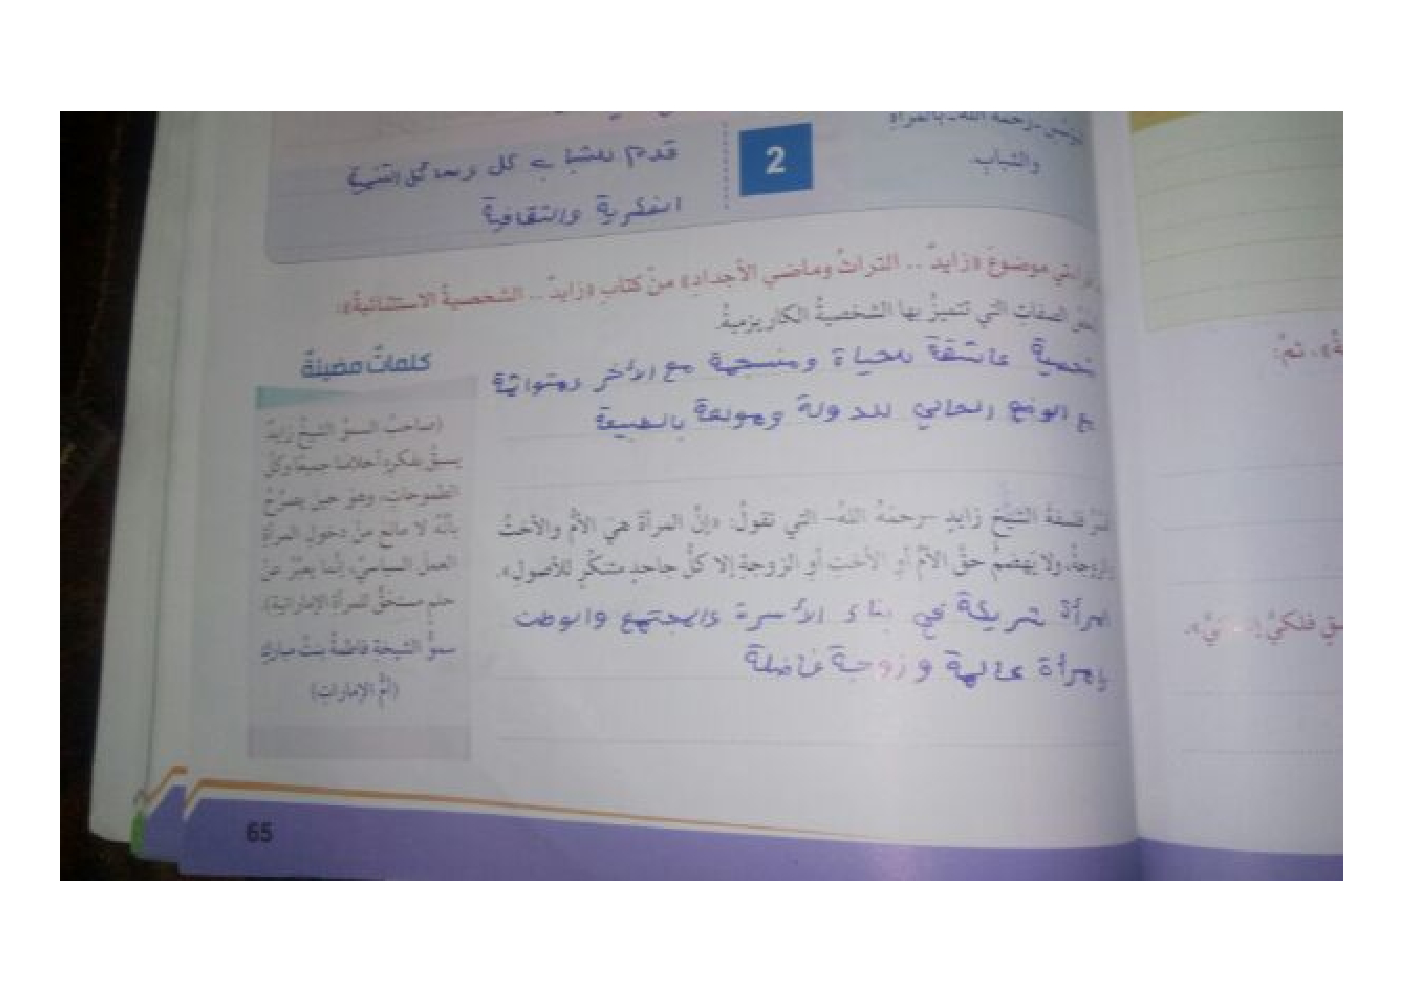 رحمه الله - بالمرأة
والشباب.
2
قدم للشباب كل وسائل التنمية
الفكرية والثقافية
موضوعَ «زايدٌ .. التراثُ وماضي الأجدادِ» منْ كتابِ «زايدٌ .. الشخصيةُ الاستثنائيةُ»:
الصفاتِ التي تتميزُ بها الشخصيةُ الكاريزميةُ.
شخصية عاشقة للحياة ومنسجمة مع الأخر ومتوائمة
مع الوضع الحالي للدولة ومولعة بالطبيعة
فلسفةَ الشيْخِ زايدٍ -رحمَهُ اللهُ- التي تقولُ: «إنَّ المرأةَ هيَ الأمُّ والأختُ
والزوجةُ، ولا يَهضمُ حقَّ الأمِّ أوِ الأختِ أوِ الزوجةِ إلا كلُّ جاحدٍ متنكّرٍ للأصولِ».
المرأة شريكة في بناء الأسرة والمجتمع والوطن
إمرأة عاملة وزوجة فاضلة
كلماتٌ مضيئةٌ
(صاحبُ السموِّ الشيخُ زايدٌ
يسبقُ بفكرِهِ أحلامَنا جميعًا وكلَّ
الطموحاتِ، وهوَ حينَ يصرّحُ
بأنَّهُ لا مانعَ منْ دخولِ المرأةِ
العملَ السياسيَّ، إنَّما يعبّرُ عنْ
حلمٍ مستحَقٍّ للمرأةِ الإماراتيةِ).
سموُّ الشيخةِ فاطمةُ بنتُ مباركٍ
(أمُّ الإماراتِ)
65
ثمَّ:
فلكيٍّ